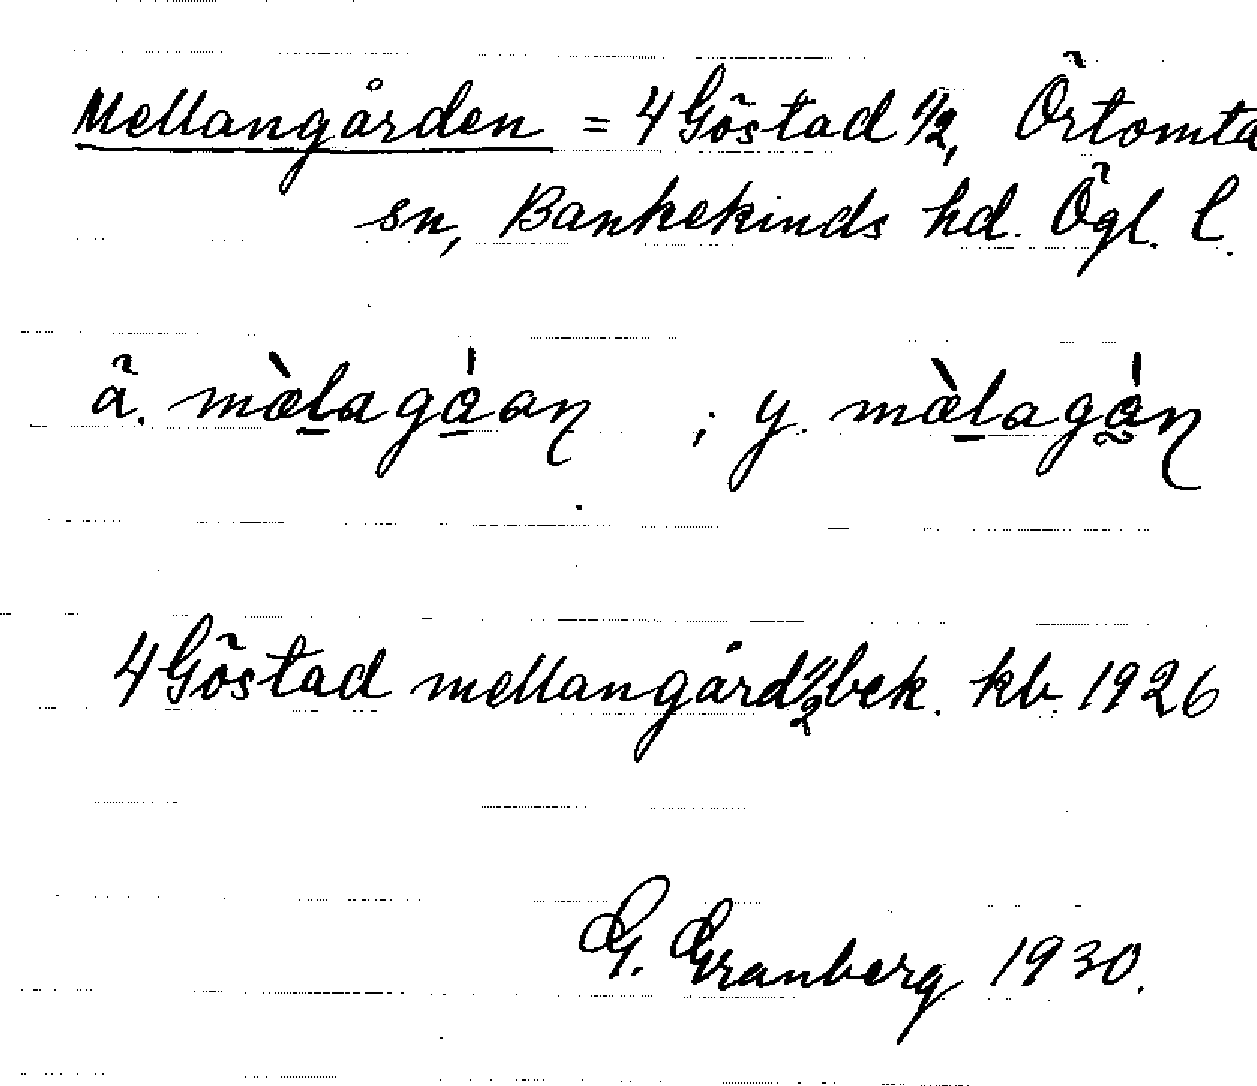 Mellangården = 4 Göstad 1/2, Örtomta
sn, Bankekinds hd. Ögl. l.
ä. mæ̀lagáan ; y. mæ̀lagán
4 Göstad mellangård 1/2 bek. kb. 1926
G. Granberg 1930.